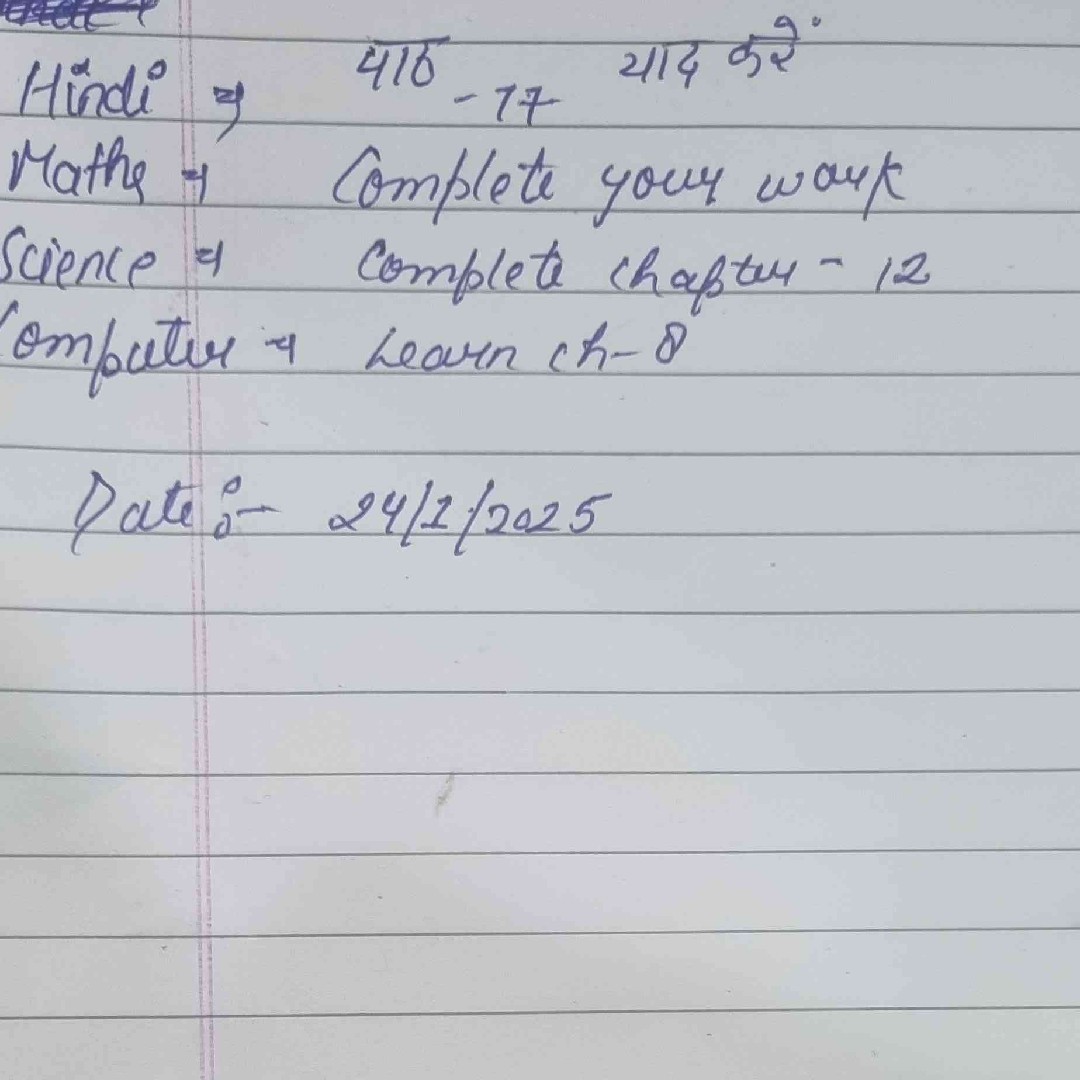 Hindi ⇒ पाठ -17 याद करें
Maths ⇒ Complete your work
Science ⇒ Complete chapter - 12
Computer ⇒ Learn ch-8
Date :- 24/1/2025